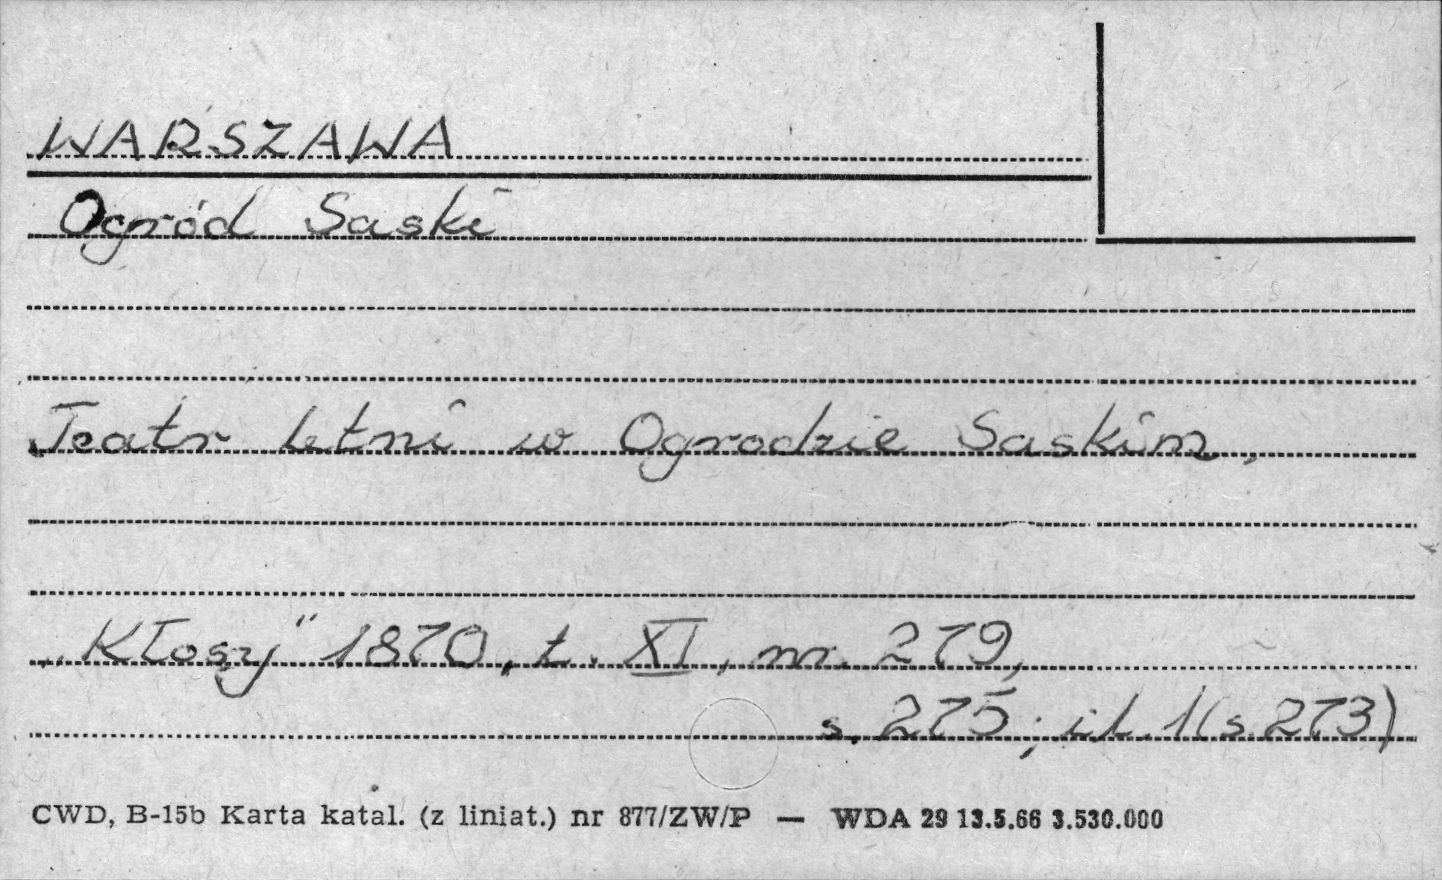 WARSZAWA
Ogród Saski
Teatr letni w Ogrodzie Saskim,
„Kłosy" 1870, t. XI, nr. 279,
s. 275; il. 1 (s. 273)
CWD, B-15b Karta katal. (z liniat.) nr 877/ZW/P — WDA 29 13.5.66 3.530.000